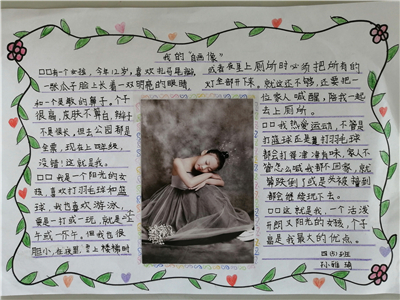 我的"自画像"
口口有一个女孩，今年12岁，喜欢扎马尾辫，
一张瓜子脸上长着一双明亮的眼睛，
和一个灵敏的鼻子，个子
很高，皮肤不算白，辫子
不是很长，但去公园都是
全票，现在上四年级，
没错！这就是我。
口口我是一个阳光的女
孩，喜欢打羽毛球和篮
球，我也喜欢游泳，
要是一打或一玩，就是一上
午或一下午。但我也很
胆小，在夜里，上楼梯时
或者夜里上厕所时必须把所有的
灯全部开下来。就这还不够，还要把一
位家人喊醒，陪我一起
去上厕所。
口口我热爱运动，不管是
打篮球还是打羽毛球
都会打得津津有味，家人不
管怎么喊我都不回家，就
算跌倒了或是头被撞到
都会继续玩下去。
口口这就是我，一个活泼
开朗又阳光的女孩，个子
高是我最大的优点。
四(5)班
孙雅涵